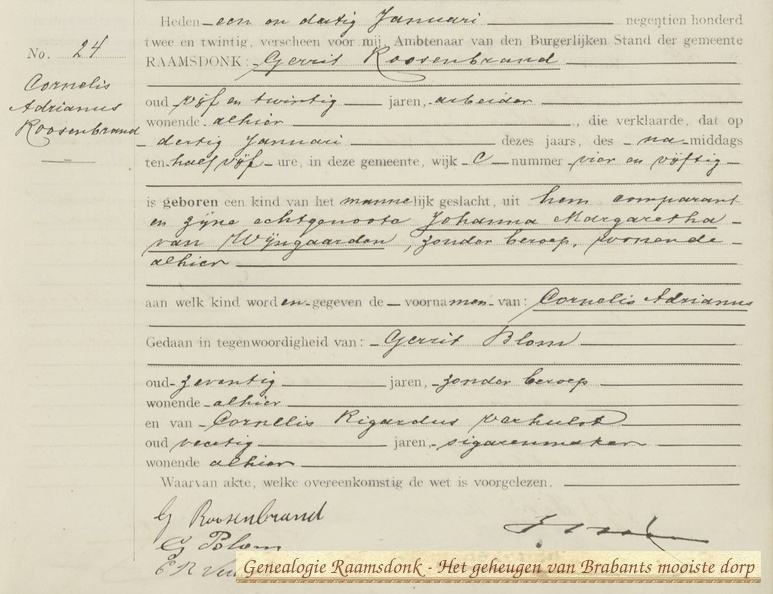 No. 24
Cornelis
Adrianus
Roosenbrand
Heden een en dertig Januari negentien honderd
twee en twintig, verscheen voor mij, Ambtenaar van den Burgerlijken Stand der gemeente
RAAMSDONK: Gerrit Roosenbrand
oud vijf en twintig jaren, arbeider
wonende alhier, die verklaarde, dat op
dertig Januari dezes jaars, des na-middags
ten half vijf ure, in deze gemeente, wijk C nummer vier en vijftig
is geboren een kind van het mannelijk geslacht, uit hem comparant
en zijne echtgenoote Johanna Margaretha
van Wijngaarden, zonder beroep, wonende
alhier
aan welk kind worden gegeven de voornamen van: Cornelis Adrianus
Gedaan in tegenwoordigheid van: Gerrit Blom
oud zeventig jaren, zonder beroep
wonende alhier
en van Cornelis Rigardus Verhulst
oud veertig jaren, sigarenmaker
wonende alhier
Waarvan akte, welke overeenkomstig de wet is voorgelezen.
G Roosenbrand
G Blom
Genealogie Raamsdonk - Het geheugen van Brabants mooiste dorp